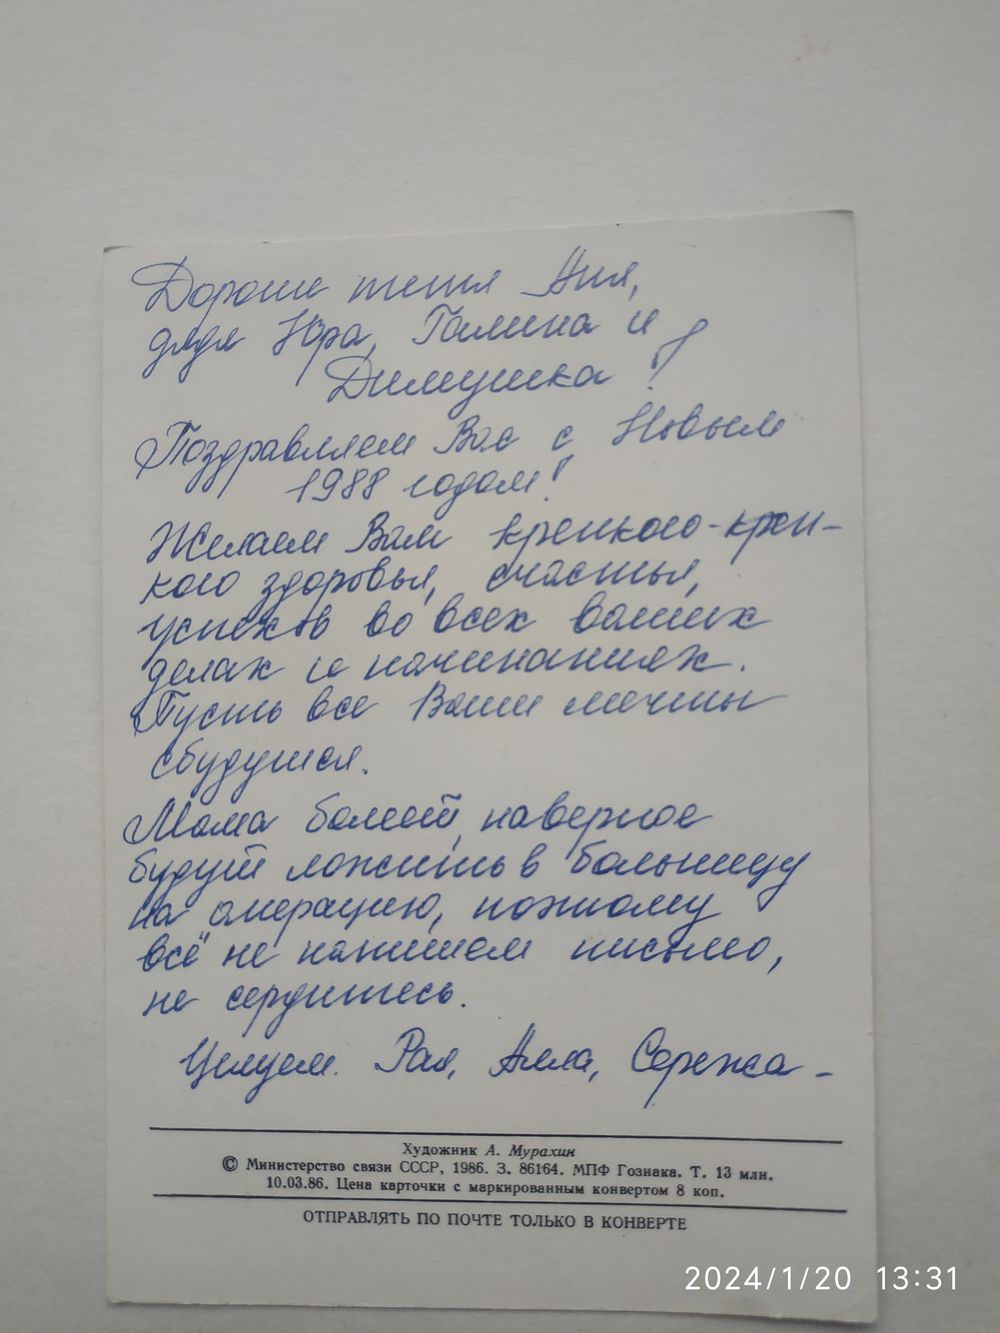 Дорогие тетя Аня,
дядя Юра, Галина и
Димушка!
Поздравляем Вас с Новым
1988 годом!
Желаем Вам крепкого-креп-
кого здоровья, счастья,
успехов во всех ваших
делах и начинаниях.
Пусть все Ваши мечты
сбудутся.
Мама болеет, наверное
будут ложить в больницу
на операцию, поэтому
всё не напишем письмо,
не сердитесь.
Целуем. Рая, Алла, Сережа-
Художник А. Мурахин
© Министерство связи СССР, 1986. З. 86164. МПФ Гознака. Т. 13 млн.
10.03.86. Цена карточки с маркированным конвертом 8 коп.
ОТПРАВЛЯТЬ ПО ПОЧТЕ ТОЛЬКО В КОНВЕРТЕ
2024/1/20 13:31